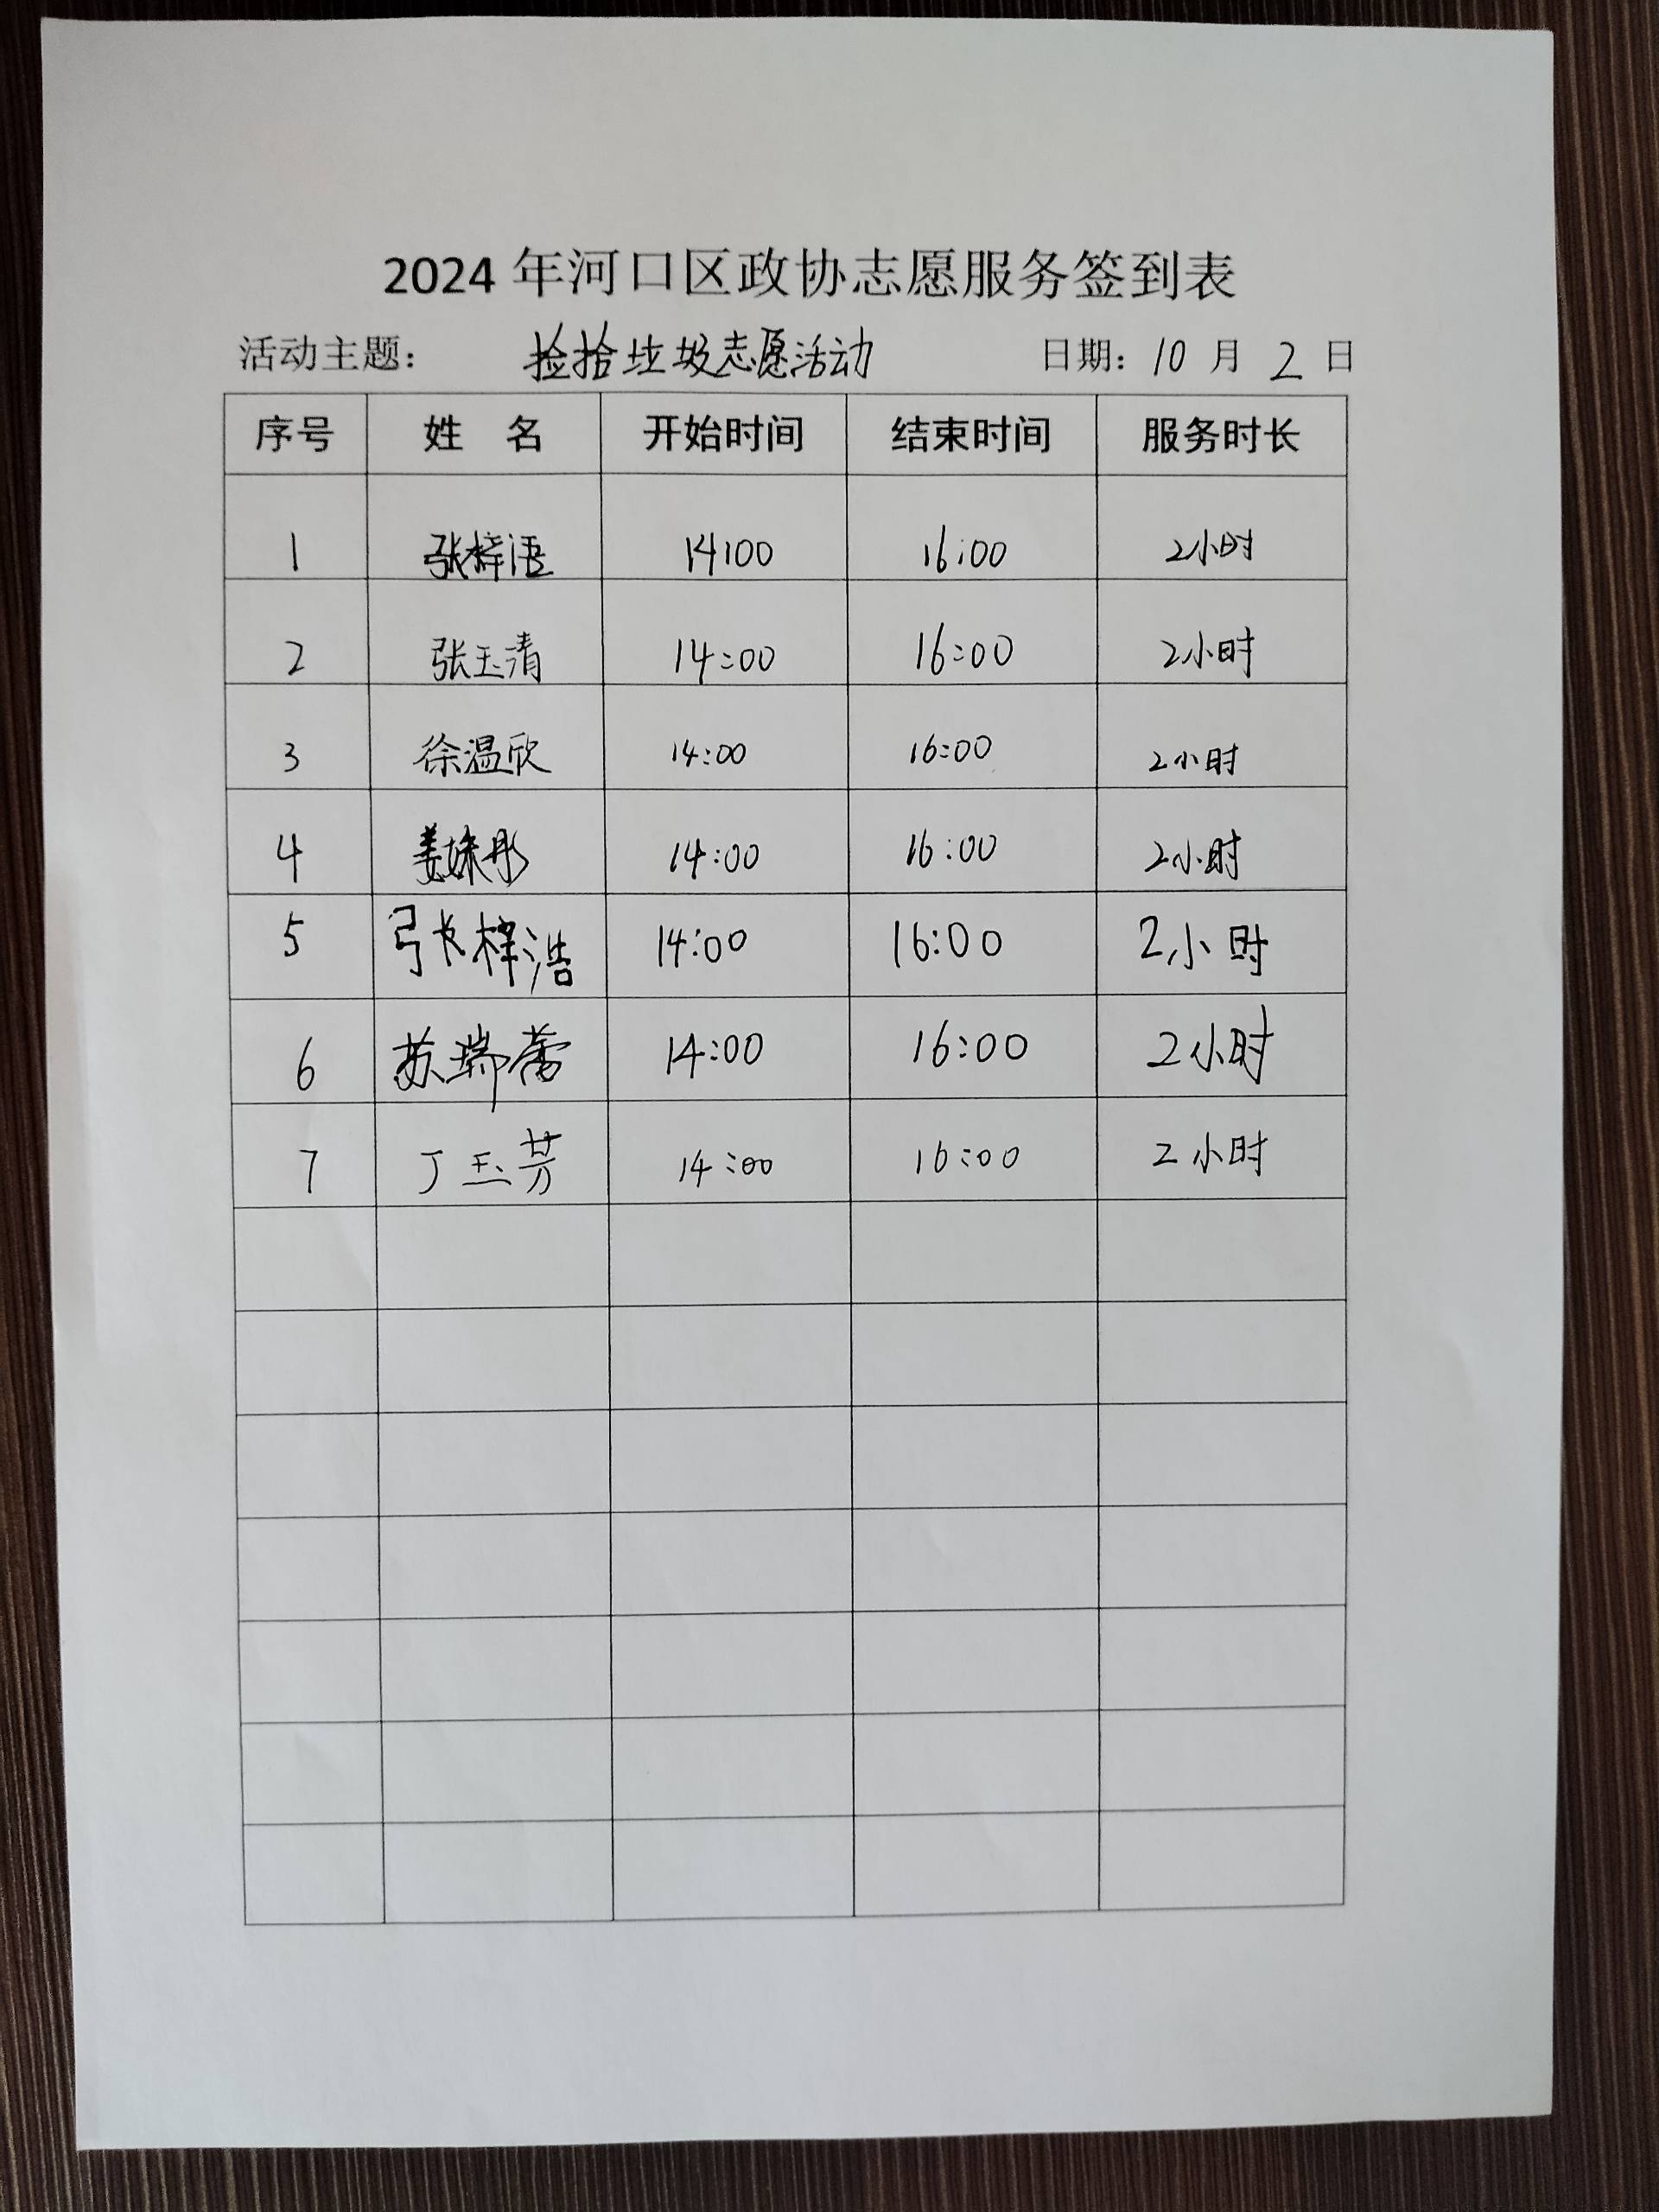 2024年河口区政协志愿服务签到表
活动主题: 捡拾垃圾志愿活动 日期: 10 月 2 日
序号 姓 名 开始时间 结束时间 服务时长
1 张梓语 14:00 16:00 2小时
2 张玉清 14:00 16:00 2小时
3 徐温欣 14:00 16:00 2小时
4 姜姝彤 14:00 16:00 2小时
5 张梓浩 14:00 16:00 2小时
6 苏瑞蕾 14:00 16:00 2小时
7 丁玉芳 14:00 16:00 2小时